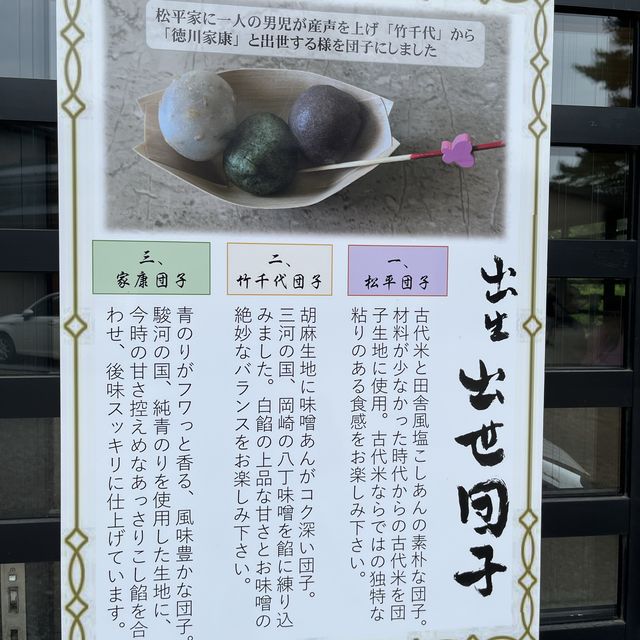 松平家に一人の男児が産声を上げ「竹千代」から
「徳川家康」と出世する様を団子にしました
出生 出世団子
一、
松平団子
古代米と田舎風塩こしあんの素朴な団子。
材料が少なかった時代からの古代米を団
子生地に使用。古代米ならではの独特な
粘りのある食感をお楽しみ下さい。
二、
竹千代団子
胡麻生地に味噌あんがコク深い団子。
三河の国、岡崎の八丁味噌を餡に練り込
みました。白餡の上品な甘さとお味噌の
絶妙なバランスをお楽しみ下さい。
三、
家康団子
青のりがフワっと香る、風味豊かな団子。
駿河の国、純青のりを使用した生地に、
今時の甘さ控えめなあっさりこし餡を合
わせ、後味スッキリに仕上げています。